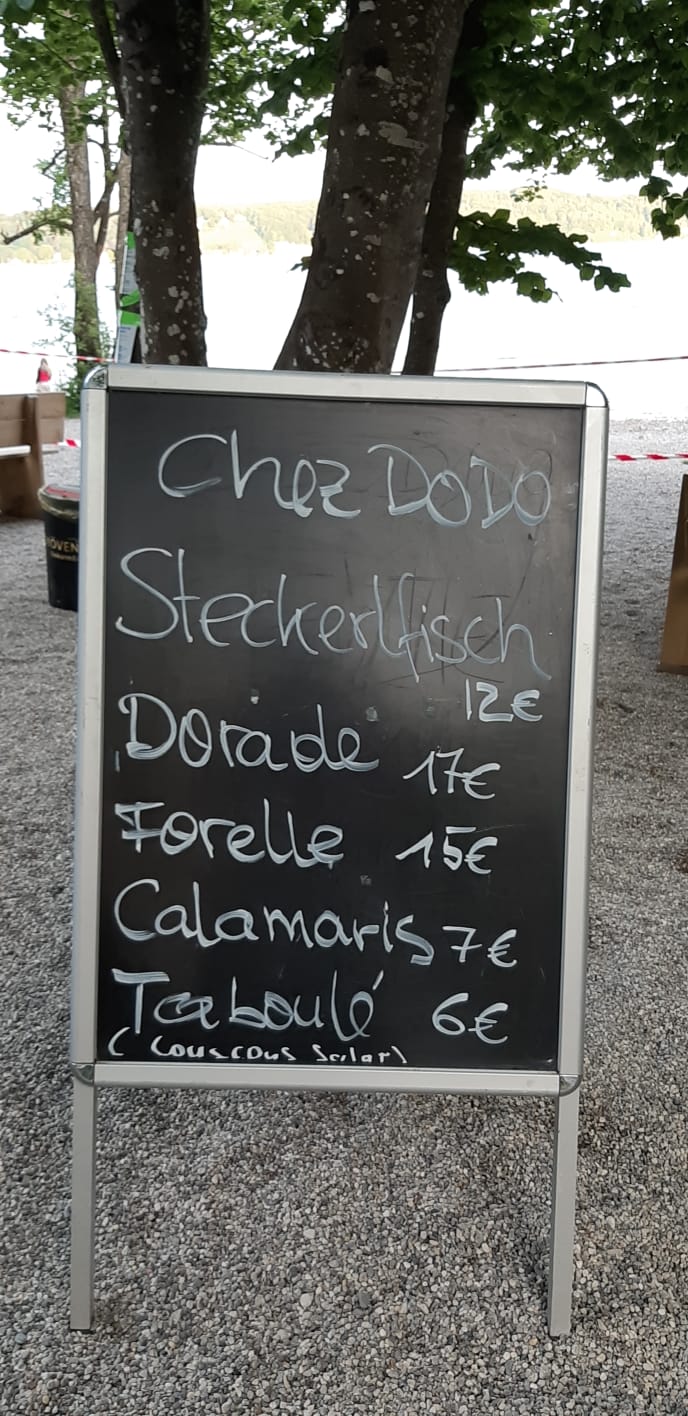 Chez DODO
Steckerlfisch
12€
Dorade 17€
Forelle 15€
Calamaris 7€
Taboulé 6€
(Couscous Salat)
ÖVEN